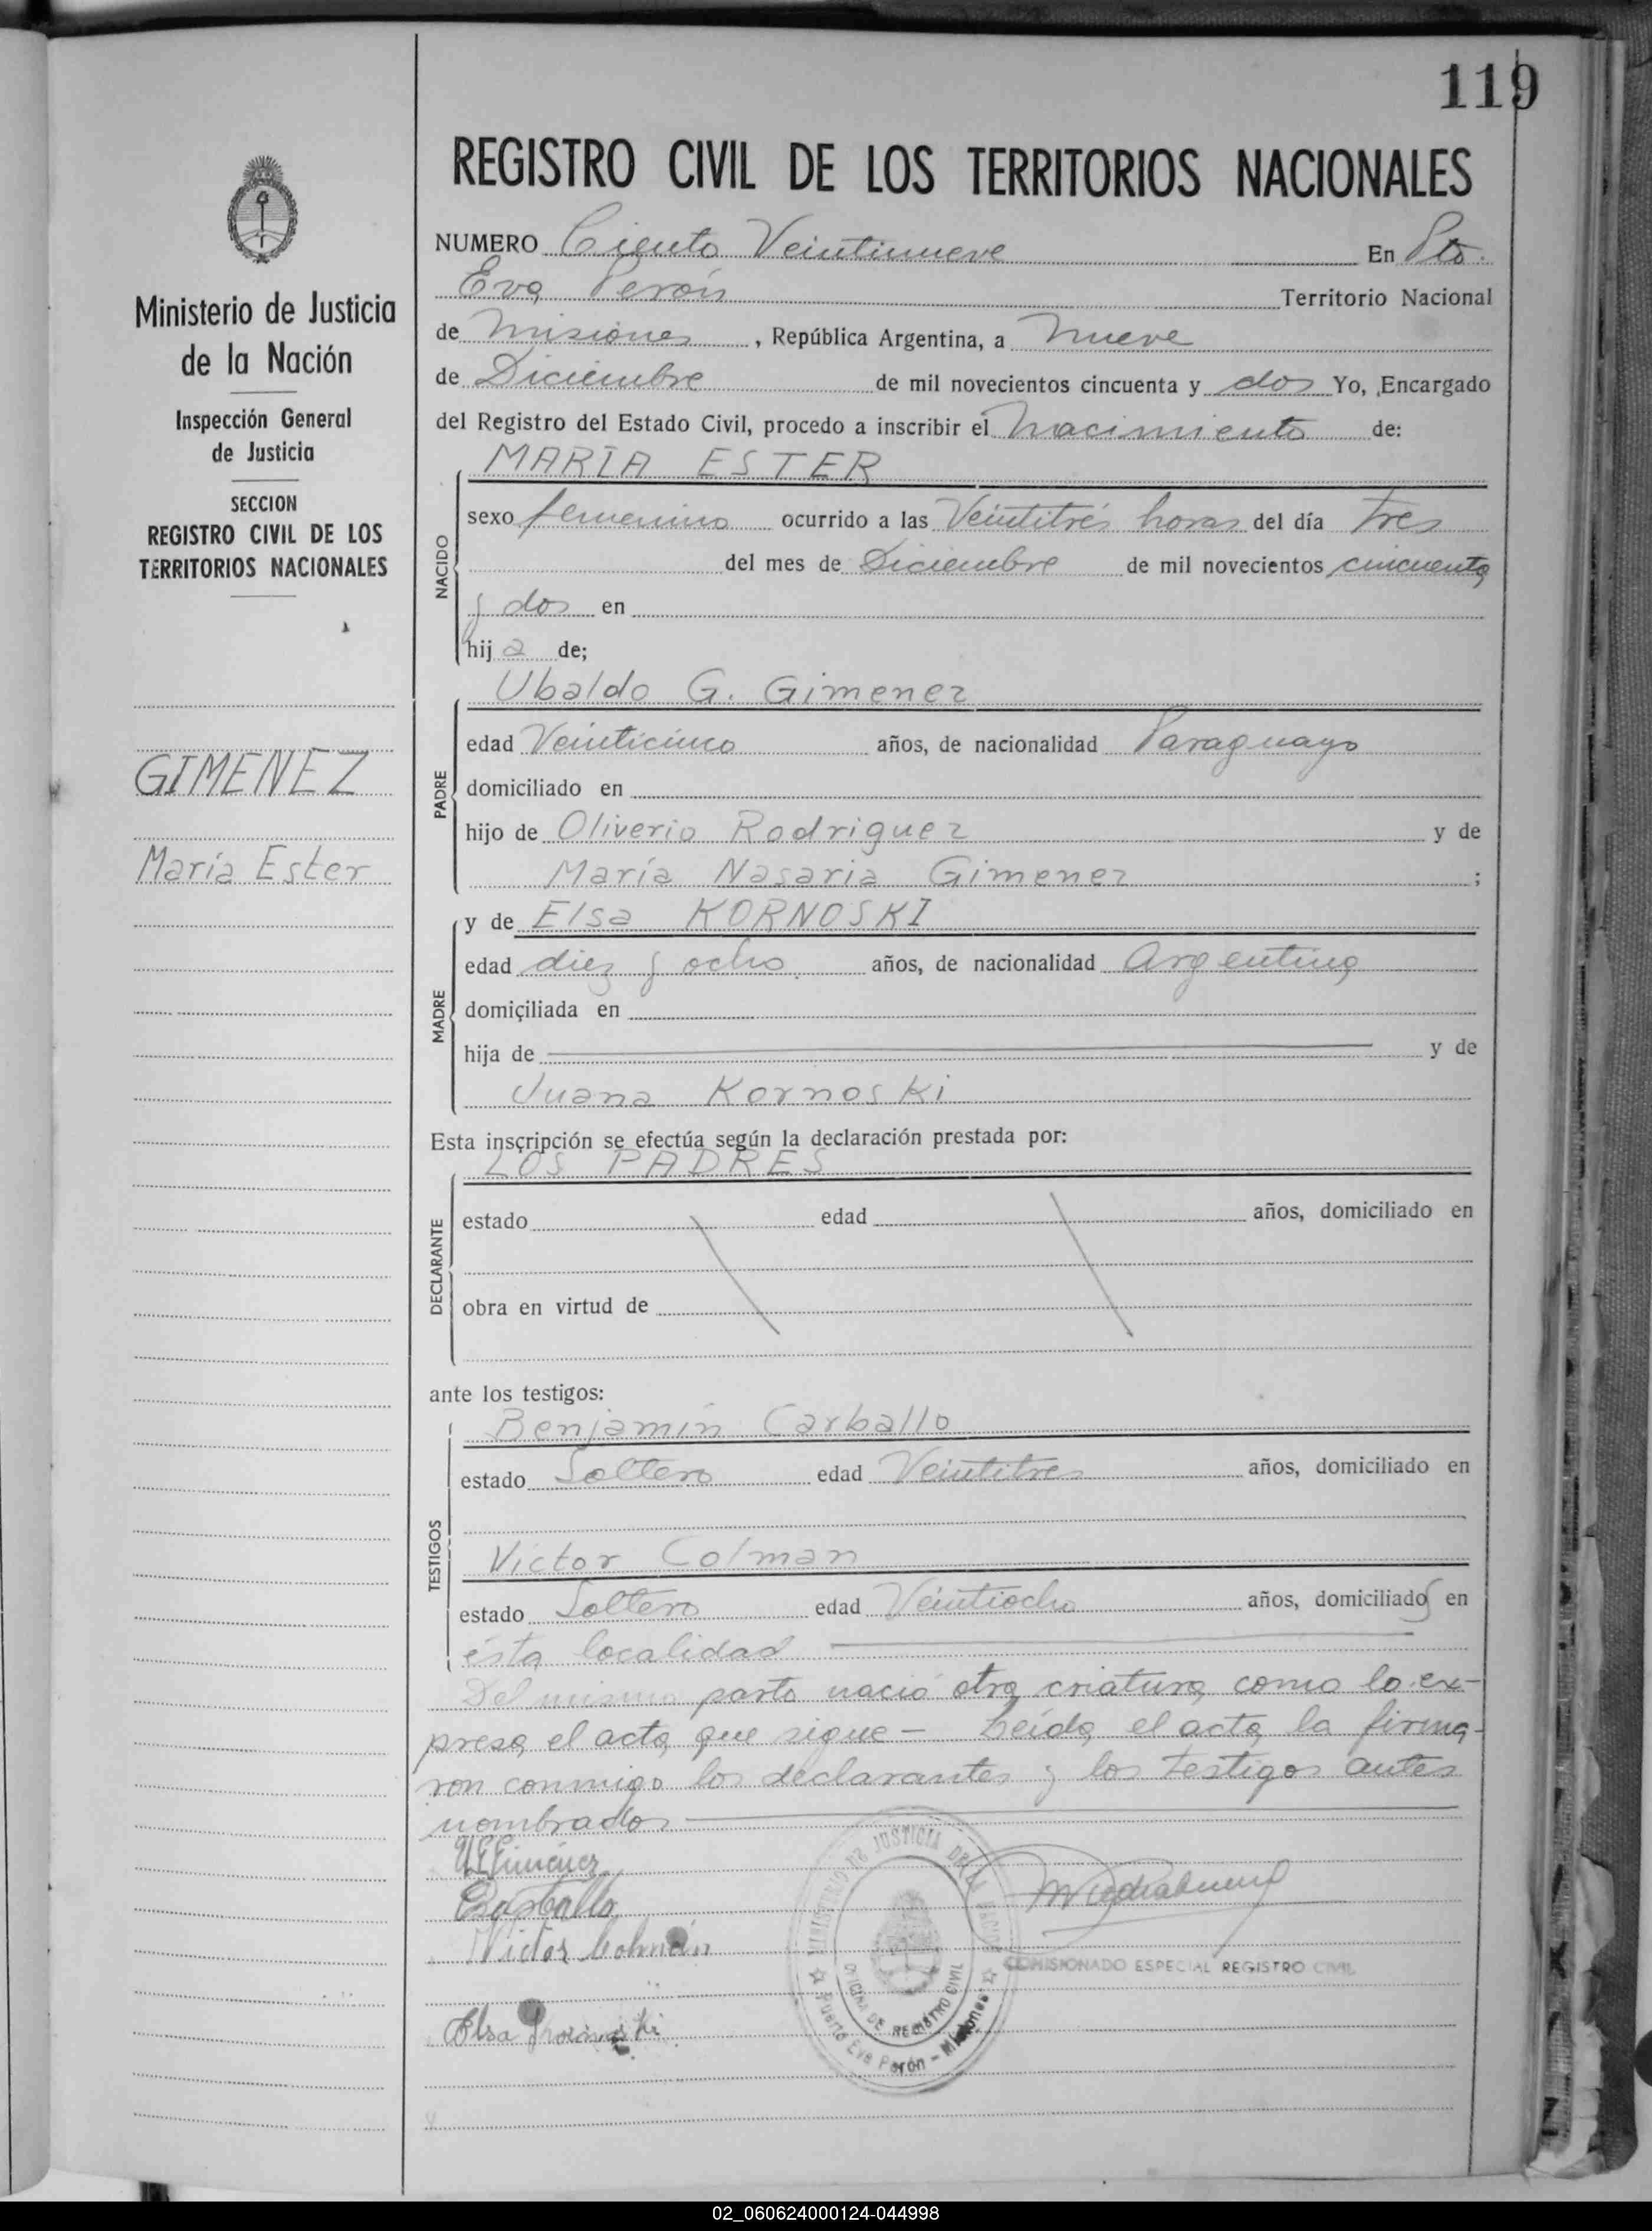 119
REGISTRO CIVIL DE LOS TERRITORIOS NACIONALES
Ministerio de Justicia
de la Nación
Inspección General
de Justicia
SECCION
REGISTRO CIVIL DE LOS
TERRITORIOS NACIONALES
GIMENEZ
María Ester
NUMERO Ciento Veintinueve En Pto.
Eva Perón Territorio Nacional
de Misiones, República Argentina, a Nueve
de Diciembre de mil novecientos cincuenta y dos Yo, Encargado
del Registro del Estado Civil, procedo a inscribir el nacimiento de:
NACIDO
MARIA ESTER
sexo femenino ocurrido a las Veintitrés horas del día tres
del mes de Diciembre de mil novecientos cincuenta
y dos en
hija de;
PADRE
Ubaldo G. Gimenez
edad Veinticinco años, de nacionalidad Paraguayo
domiciliado en
hijo de Oliverio Rodriguez y de
María Nasaria Gimenez ;
MADRE
y de Elsa KORNOSKI
edad diez y ocho años, de nacionalidad Argentina
domiciliada en
hija de y de
Juana Kornoski
Esta inscripción se efectúa según la declaración prestada por:
DECLARANTE
LOS PADRES
estado edad años, domiciliado en
obra en virtud de
ante los testigos:
TESTIGOS
Benjamín Carballo
estado Soltero edad Veintitres años, domiciliado en
Victor Colman
estado Soltero edad Veintiocho años, domiciliados en
ésta localidad
Del mismo parto nació otra criatura como lo ex-
presa el acta que sigue - Leída el acta la firma-
ron conmigo los declarantes y los testigos antes
nombrados
Carballo
Victor Colmán
Elsa Kornoski
MINISTERIO DE JUSTICIA DE LA NACION
OFICINA DE REGISTRO CIVIL
Puerto Eva Perón - Misiones
COMISIONADO ESPECIAL REGISTRO CIVIL
02_060624000124-044998